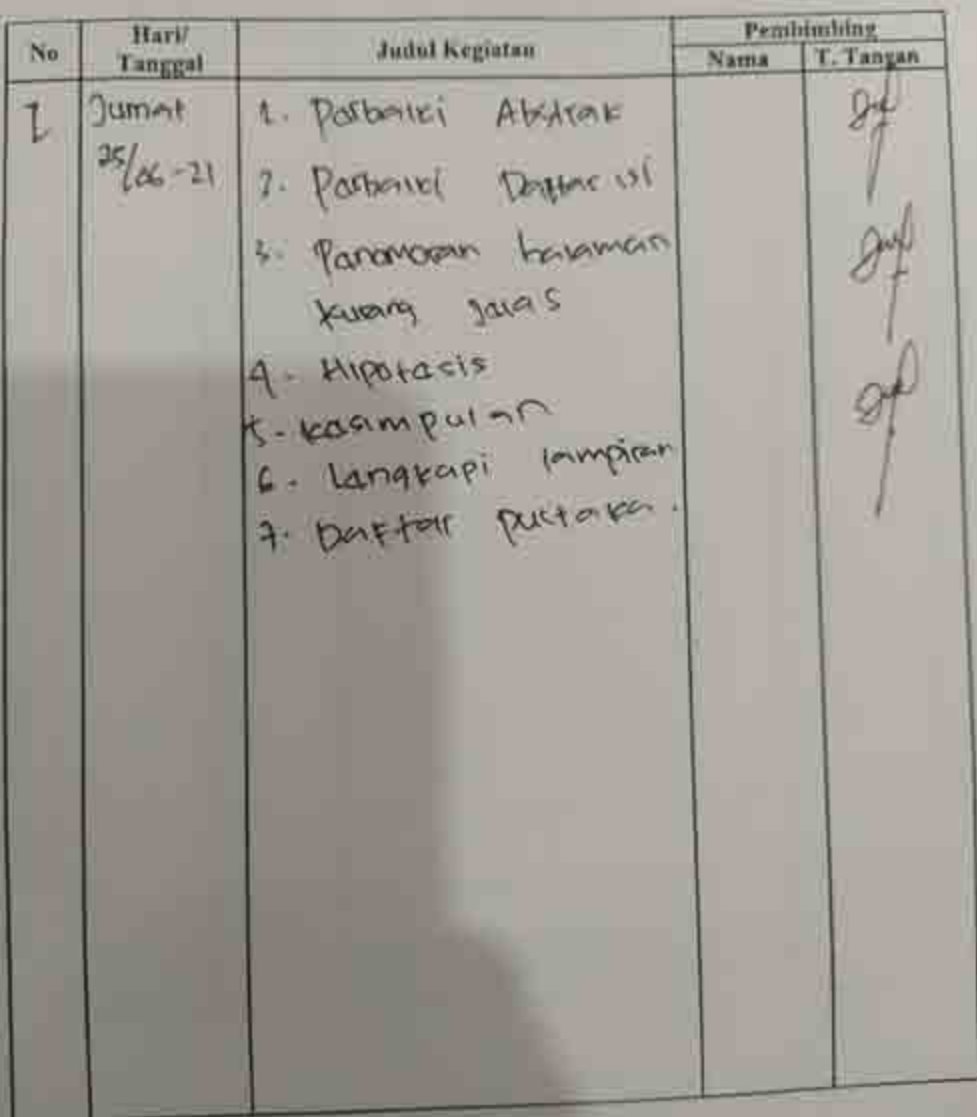 No Hari/ Tanggal Judul Kegiatan Pembimbing
Nama T. Tangan
1 Jumat 1. Perbaiki Abstrak
25/06-21 2. Perbaiki Daftar isi
3. Penomoran halaman
kurang jelas
4. Hipotesis
5. kesimpulan
6. Lengkapi lampiran
7. Daftar pustaka.